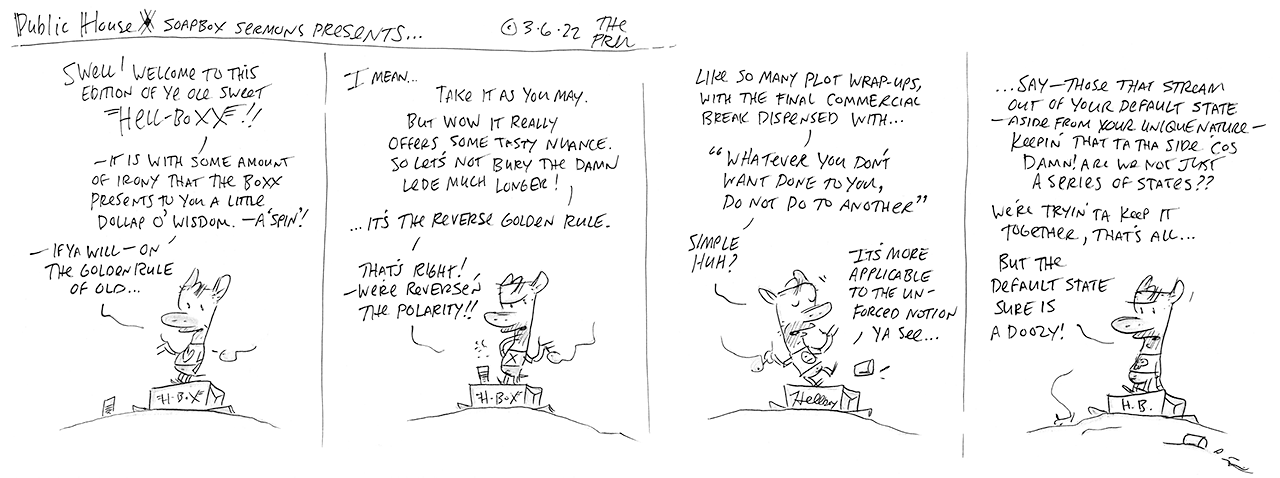 Public House X SOAPBOX SERMONS PRESENTS...
© 3·6·22
THE
PRU
SWELL! WELCOME TO THIS
EDITION OF YE OLE SWEET
HELL-BOXX!!
—IT IS WITH SOME AMOUNT
OF IRONY THAT THE BOXX
PRESENTS TO YOU A LITTLE
DOLLAP O' WISDOM. —A 'SPIN'!
—IF YA WILL—ON
THE GOLDEN RULE
OF OLD...
H-BOX
I MEAN...
TAKE IT AS YOU MAY.
BUT WOW IT REALLY
OFFERS SOME TASTY NUANCE.
SO LET'S NOT BURY THE DAMN
LEDE MUCH LONGER!
...IT'S THE REVERSE GOLDEN RULE.
THAT'S RIGHT!
—WE'RE REVERSEN'
THE POLARITY!!
X
H-BOX
LIKE SO MANY PLOT WRAP-UPS,
WITH THE FINAL COMMERCIAL
BREAK DISPENSED WITH...
"WHATEVER YOU DON'T
WANT DONE TO YOU,
DO NOT DO TO ANOTHER"
SIMPLE
HUH?
—IT'S MORE
APPLICABLE
TO THE UN-
FORCED NOTION
YA SEE...
...SAY—THOSE THAT STREAM
OUT OF YOUR DEFAULT STATE
—ASIDE FROM YOUR UNIQUE NATURE—
KEEPIN' THAT TA THA SIDE COS
DAMN! ARE WE NOT JUST
A SERIES OF STATES??
WE'RE TRYIN' TA KEEP IT
TOGETHER, THAT'S ALL...
BUT THE
DEFAULT STATE
SURE IS
A DOOZY!
H.B.